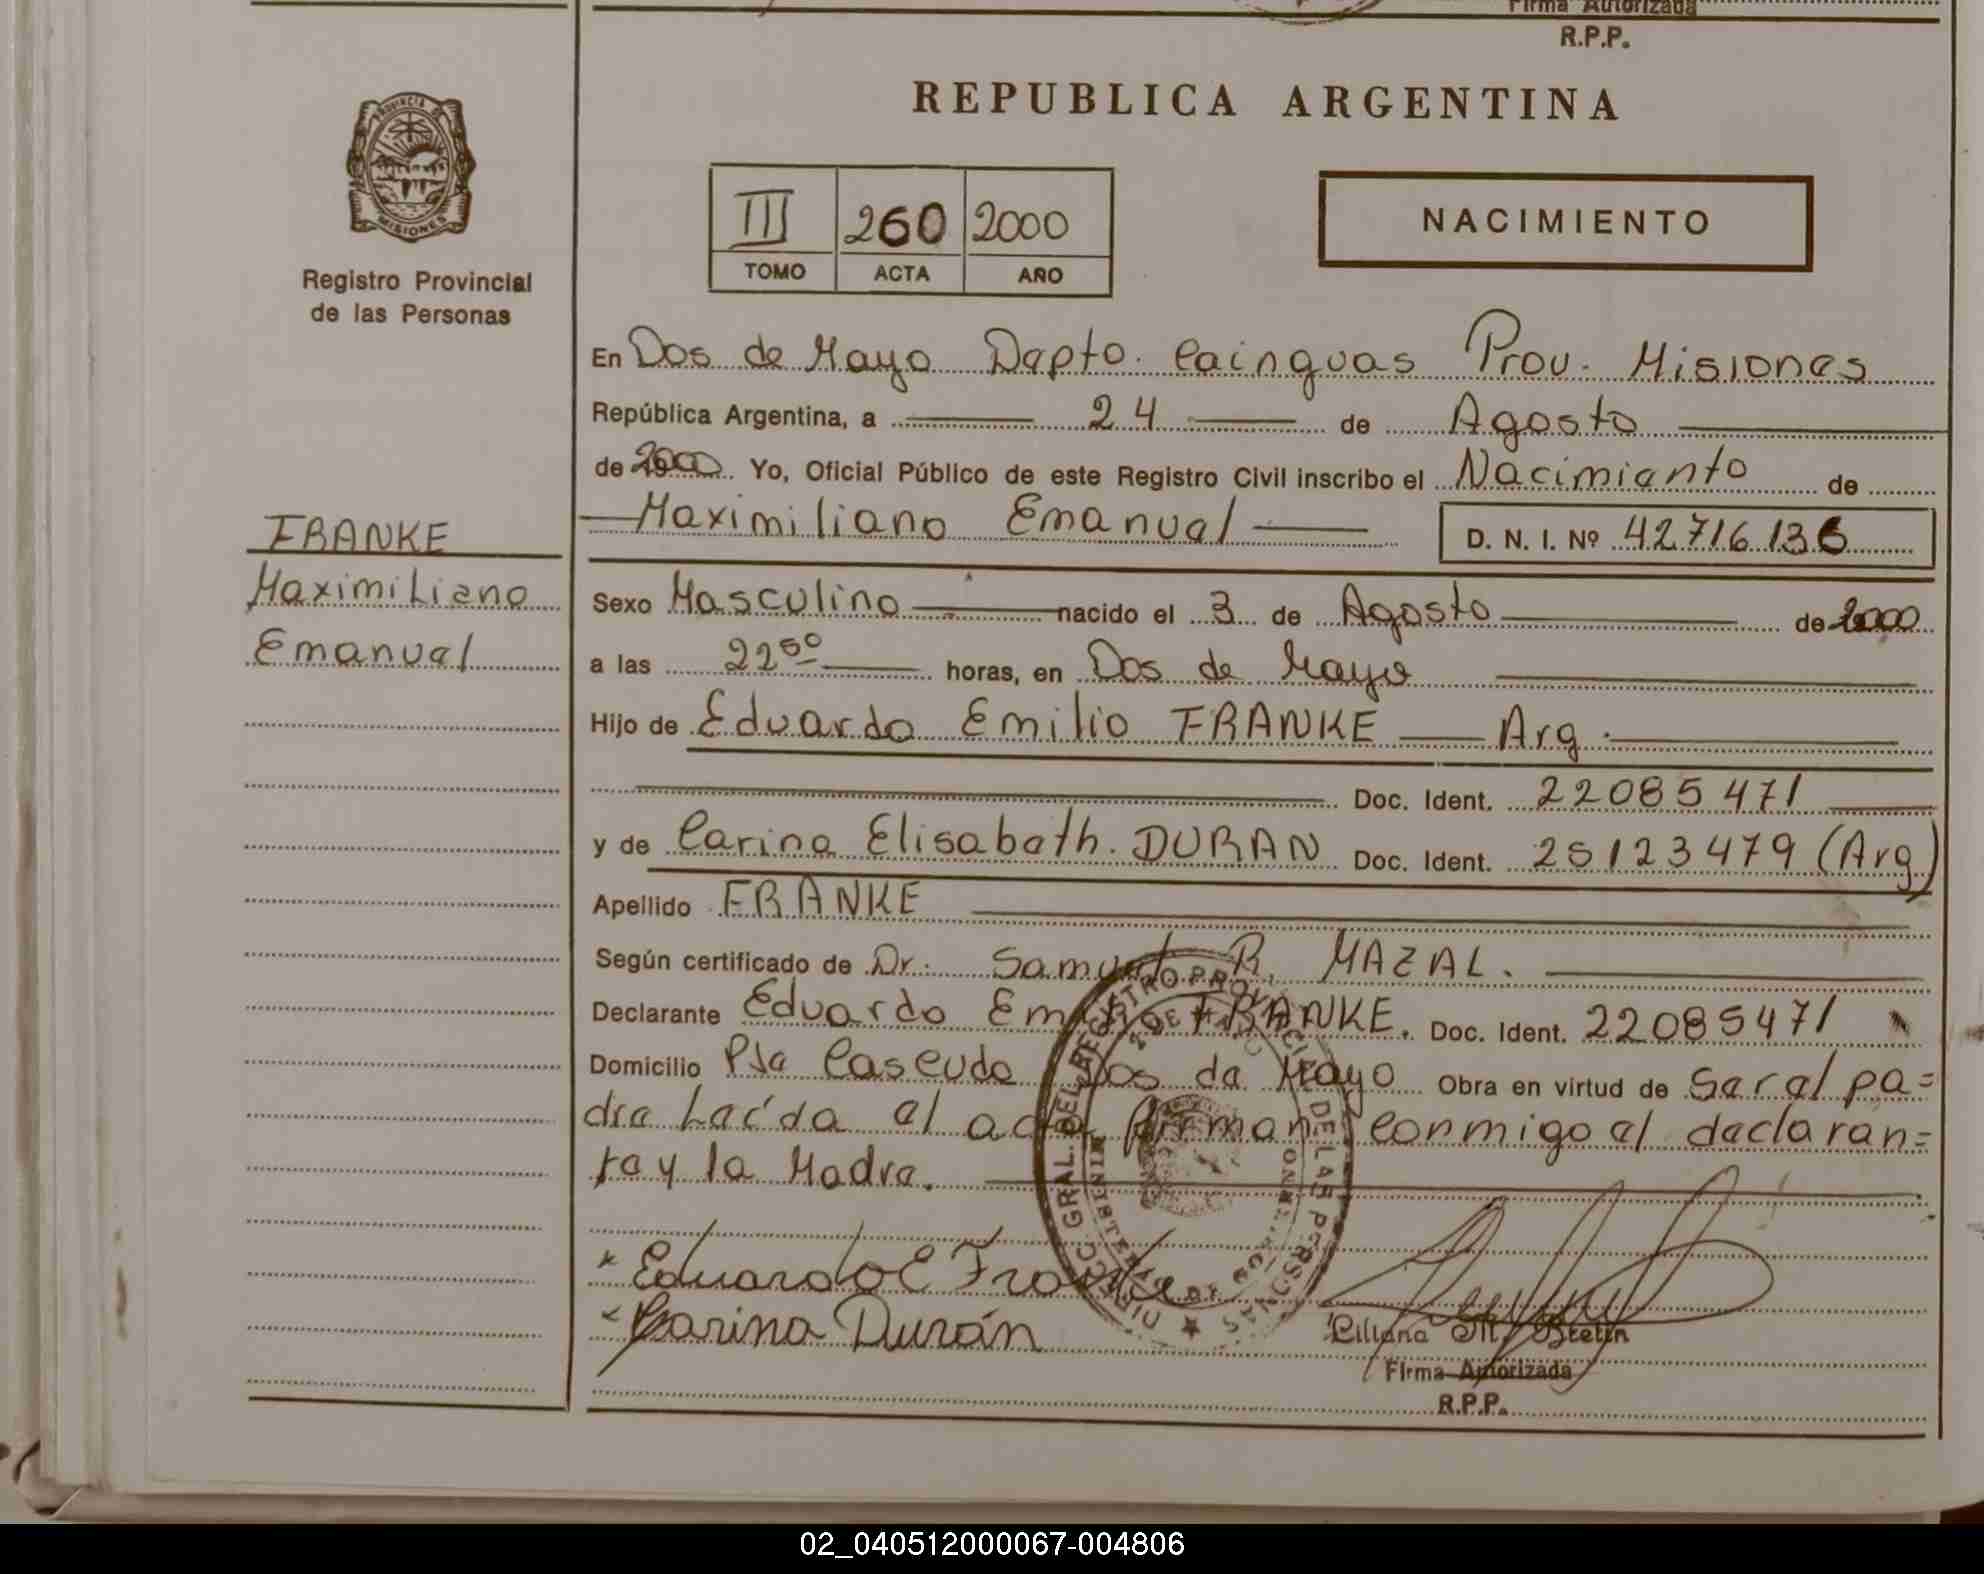 Firma Autorizada
R.P.P.
REPUBLICA ARGENTINA
PROVINCIA DE
MISIONES
Registro Provincial
de las Personas
III 260 2000
TOMO ACTA AÑO
NACIMIENTO
En Dos de Mayo Depto. Cainguas Prov. Misiones
República Argentina, a 24 de Agosto
de 2000 Yo, Oficial Público de este Registro Civil inscribo el Nacimiento de
Maximiliano Emanuel D. N. I. Nº 42716136
FRANKE
Maximiliano
Emanuel
Sexo Masculino nacido el 3 de Agosto de 2000
a las 22 50 horas, en Dos de Mayo
Hijo de Eduardo Emilio FRANKE Arg.
Doc. Ident. 22085471
y de Carina Elisabeth. DURAN Doc. Ident. 25123479 (Arg)
Apellido FRANKE
Según certificado de Dr. Samuel R. MAZAL.
Declarante Eduardo Emilio FRANKE. Doc. Ident. 22085471
Domicilio Pje Dos de Mayo Obra en virtud de Ser el pa=
dre Leída el acta firman conmigo el declaran=
te y la Madre.
DIRECC. GRAL. DEL REGISTRO PROVINCIAL DE LAS PERSONAS
2 DE MAYO
Eduardo E Franke
Carina Durán
Liliana M. Stetin
Firma Autorizada
R.P.P.
02_040512000067-004806